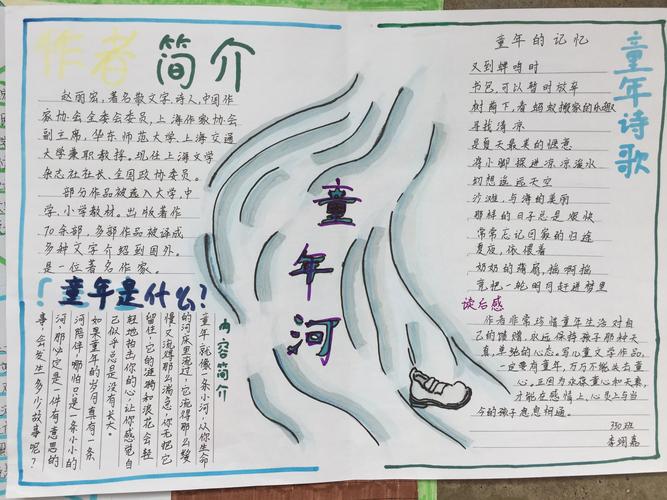 作者简介
赵丽宏，著名散文家，诗人，中国作
家协会全委会委员，上海作家协会
副主席，华东师范大学、上海交通
大学兼职教授。现任上海文学
杂志社社长，全国政协委员。
部分作品被选入大学，中
学，小学教材。出版著作
70余部，多部作品被译成
多种文字介绍到国外。
是一位著名作家。
童年是什么？
内容简介
童年就像一条小河，从你生命
的河床里流过，它流得那么缓
慢又流得那么湍急，你无把它
留住，它的涟漪和浪花会轻
轻地拍击你的心，让你感觉自
己似乎总是没有长大。
如果童年的岁月真有一条
河陪伴，哪怕只是一条小小的
河，那必定是一件有意思的
事，会发生多少故事呢？
童年河
童年诗歌
童年的记忆
又到蝉鸣时
书包，可以暂时放弃
树荫下，看蚂蚁搬家的乐趣
寻找清凉
是夏天最美的惬意
将小脚探进凉凉溪水
幻想遥远天空
沙滩，与海的美丽
那样的日子总是飞快
常常忘记回家的归途
夏夜，依偎着
奶奶的蒲扇，摇啊摇
竟把一轮明月赶进梦里
读后感
作者非常珍惜童年生活对自
己的馈赠，永远保持孩子那种天
真，单纯的心态。写儿童文学作品，
一定要有童年，万万不能失去童
心，正因为众保童心和天真，
才能在感情上，心灵上与当
今的孩子息息相通。
330班
李翊嘉